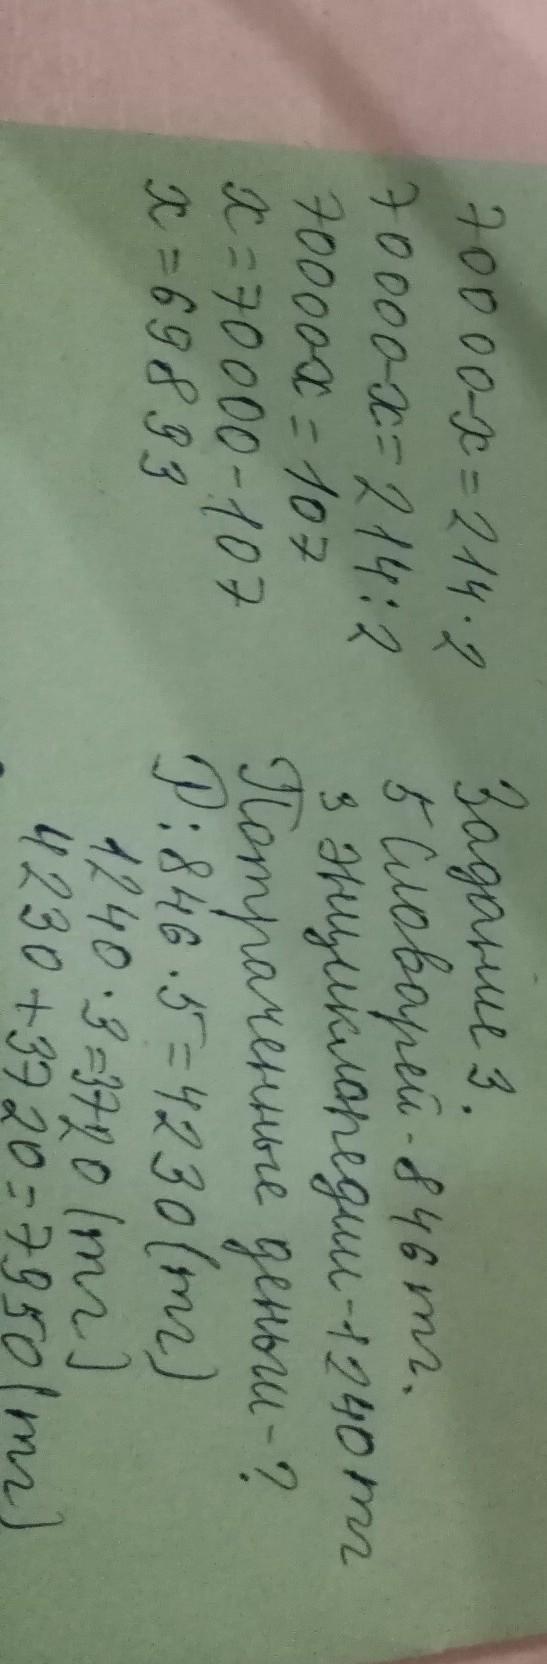 70000-x=214·2
70000-x=214:2
70000x=107
x=70000-107
x=69893
Задание 3.
5 Словарей-846тг.
3 энциклоредии-1240тг
Потраченные деньги-?
Р:846·5=4230(тг)
1240·3=3720(тг)
4230+3720=7950(тг)